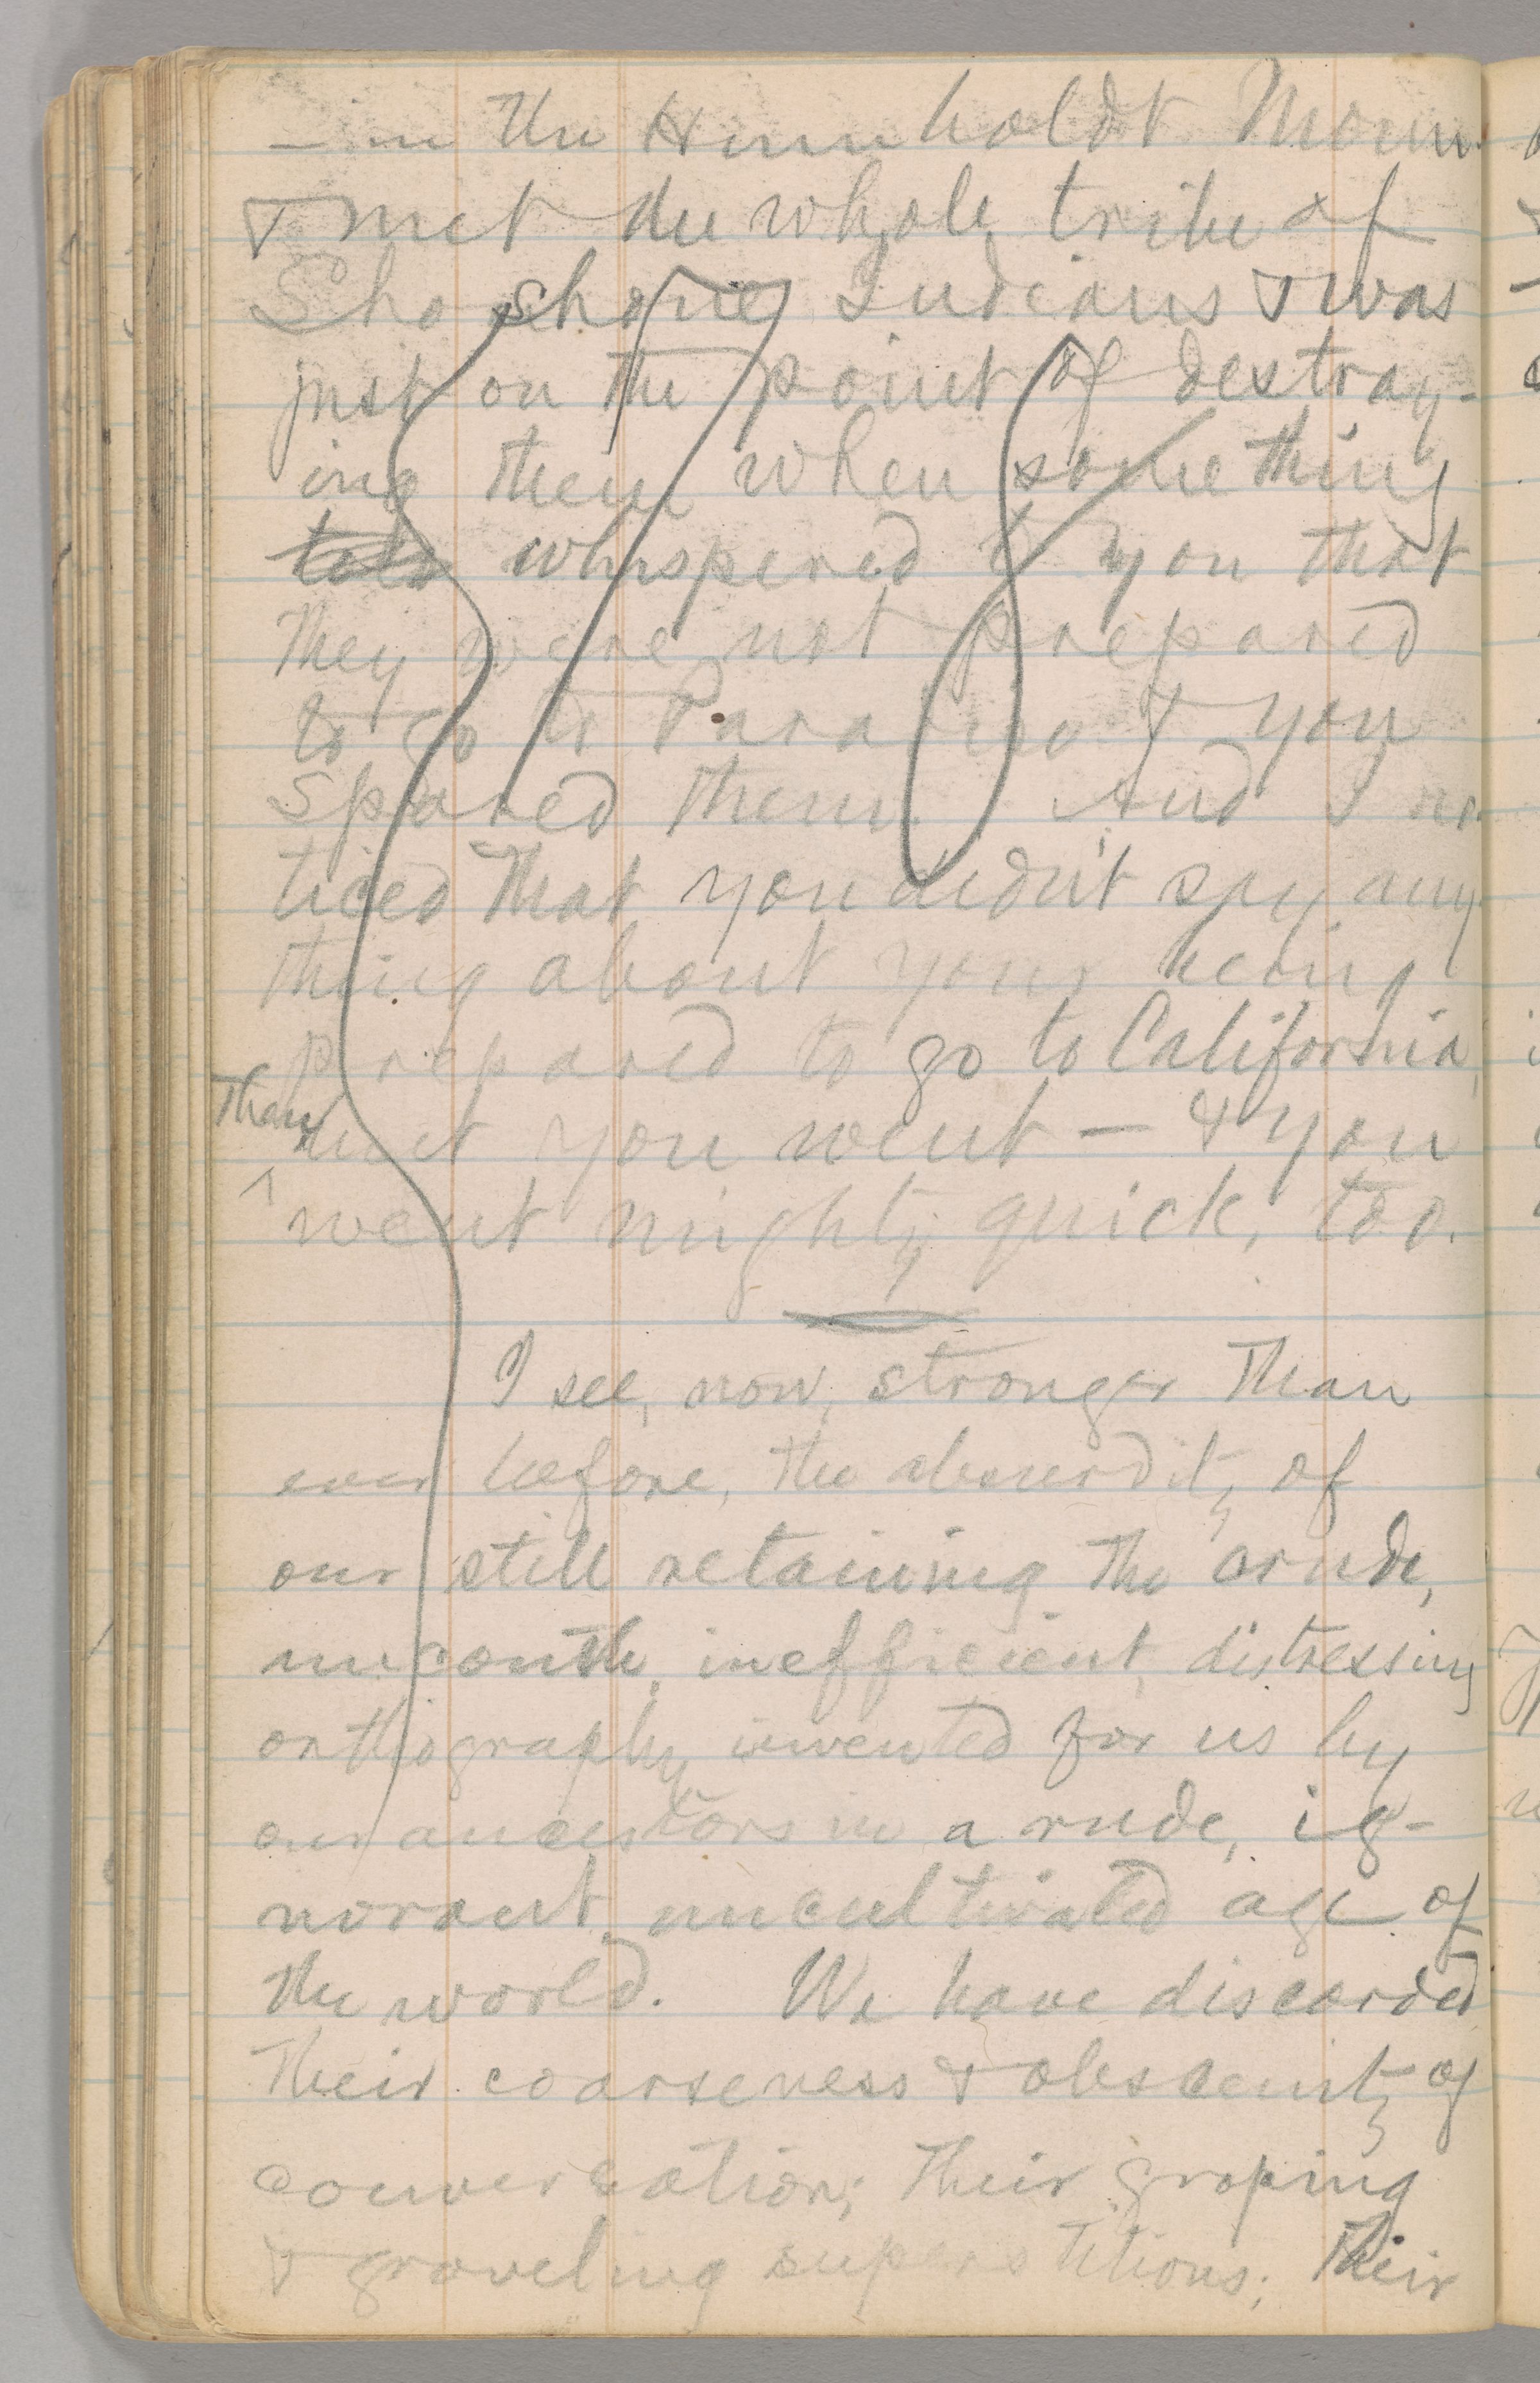 — in the Humboldt Moun
& met the whole tribe of
Shoshone Indians & was
just on the point of destroy-
ing them when something
told whispered to you that
they were not prepared
to go to Paradise & you
spared them. And I no
ticed that you didn't say any
thing about your being
prepared to go to California,
Than
but you went — & you
went mighty quick, too.
I see, now, stronger than
ever before, the absurdity of
our still retaining the crude,
uncouth, inefficient, distressing
orthography invented for us by
our ancestors in a rude, ig-
norant, uncultivated age of
the world. We have discarded
their coarseness & obscenity of
conversation; their groping
& groveling superstitions; their